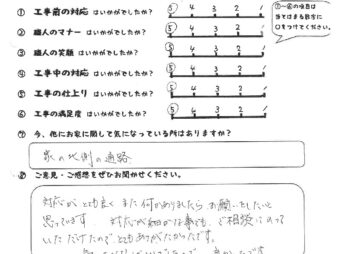 ① 工事前の対応 はいかがでしたか? ⑤ 4 3 2 1
② 職人のマナー はいかがでしたか? ⑤ 4 3 2 1
③ 職人の笑顔 はいかがでしたか? ⑤ 4 3 2 1
④ 工事中の対応 はいかがでしたか? ⑤ 4 3 2 1
⑤ 工事の仕上り はいかがでしたか? ⑤ 4 3 2 1
⑥ 工事の満足度 はいかがでしたか? ⑤ 4 3 2 1
①~⑥の項目は
当てはまる数字に
○をつけてください。
⑦ 今、他にお家に関して気になっている所はありますか?
家の北側の通路
⑧ ご意見・ご感想をぜひお聞かせください。
対応がとても良く また何かありましたらお願いしたいと
思っています 対応が細かな事でも、ご相談にのって
いただけたので、とてもありがたかったです。